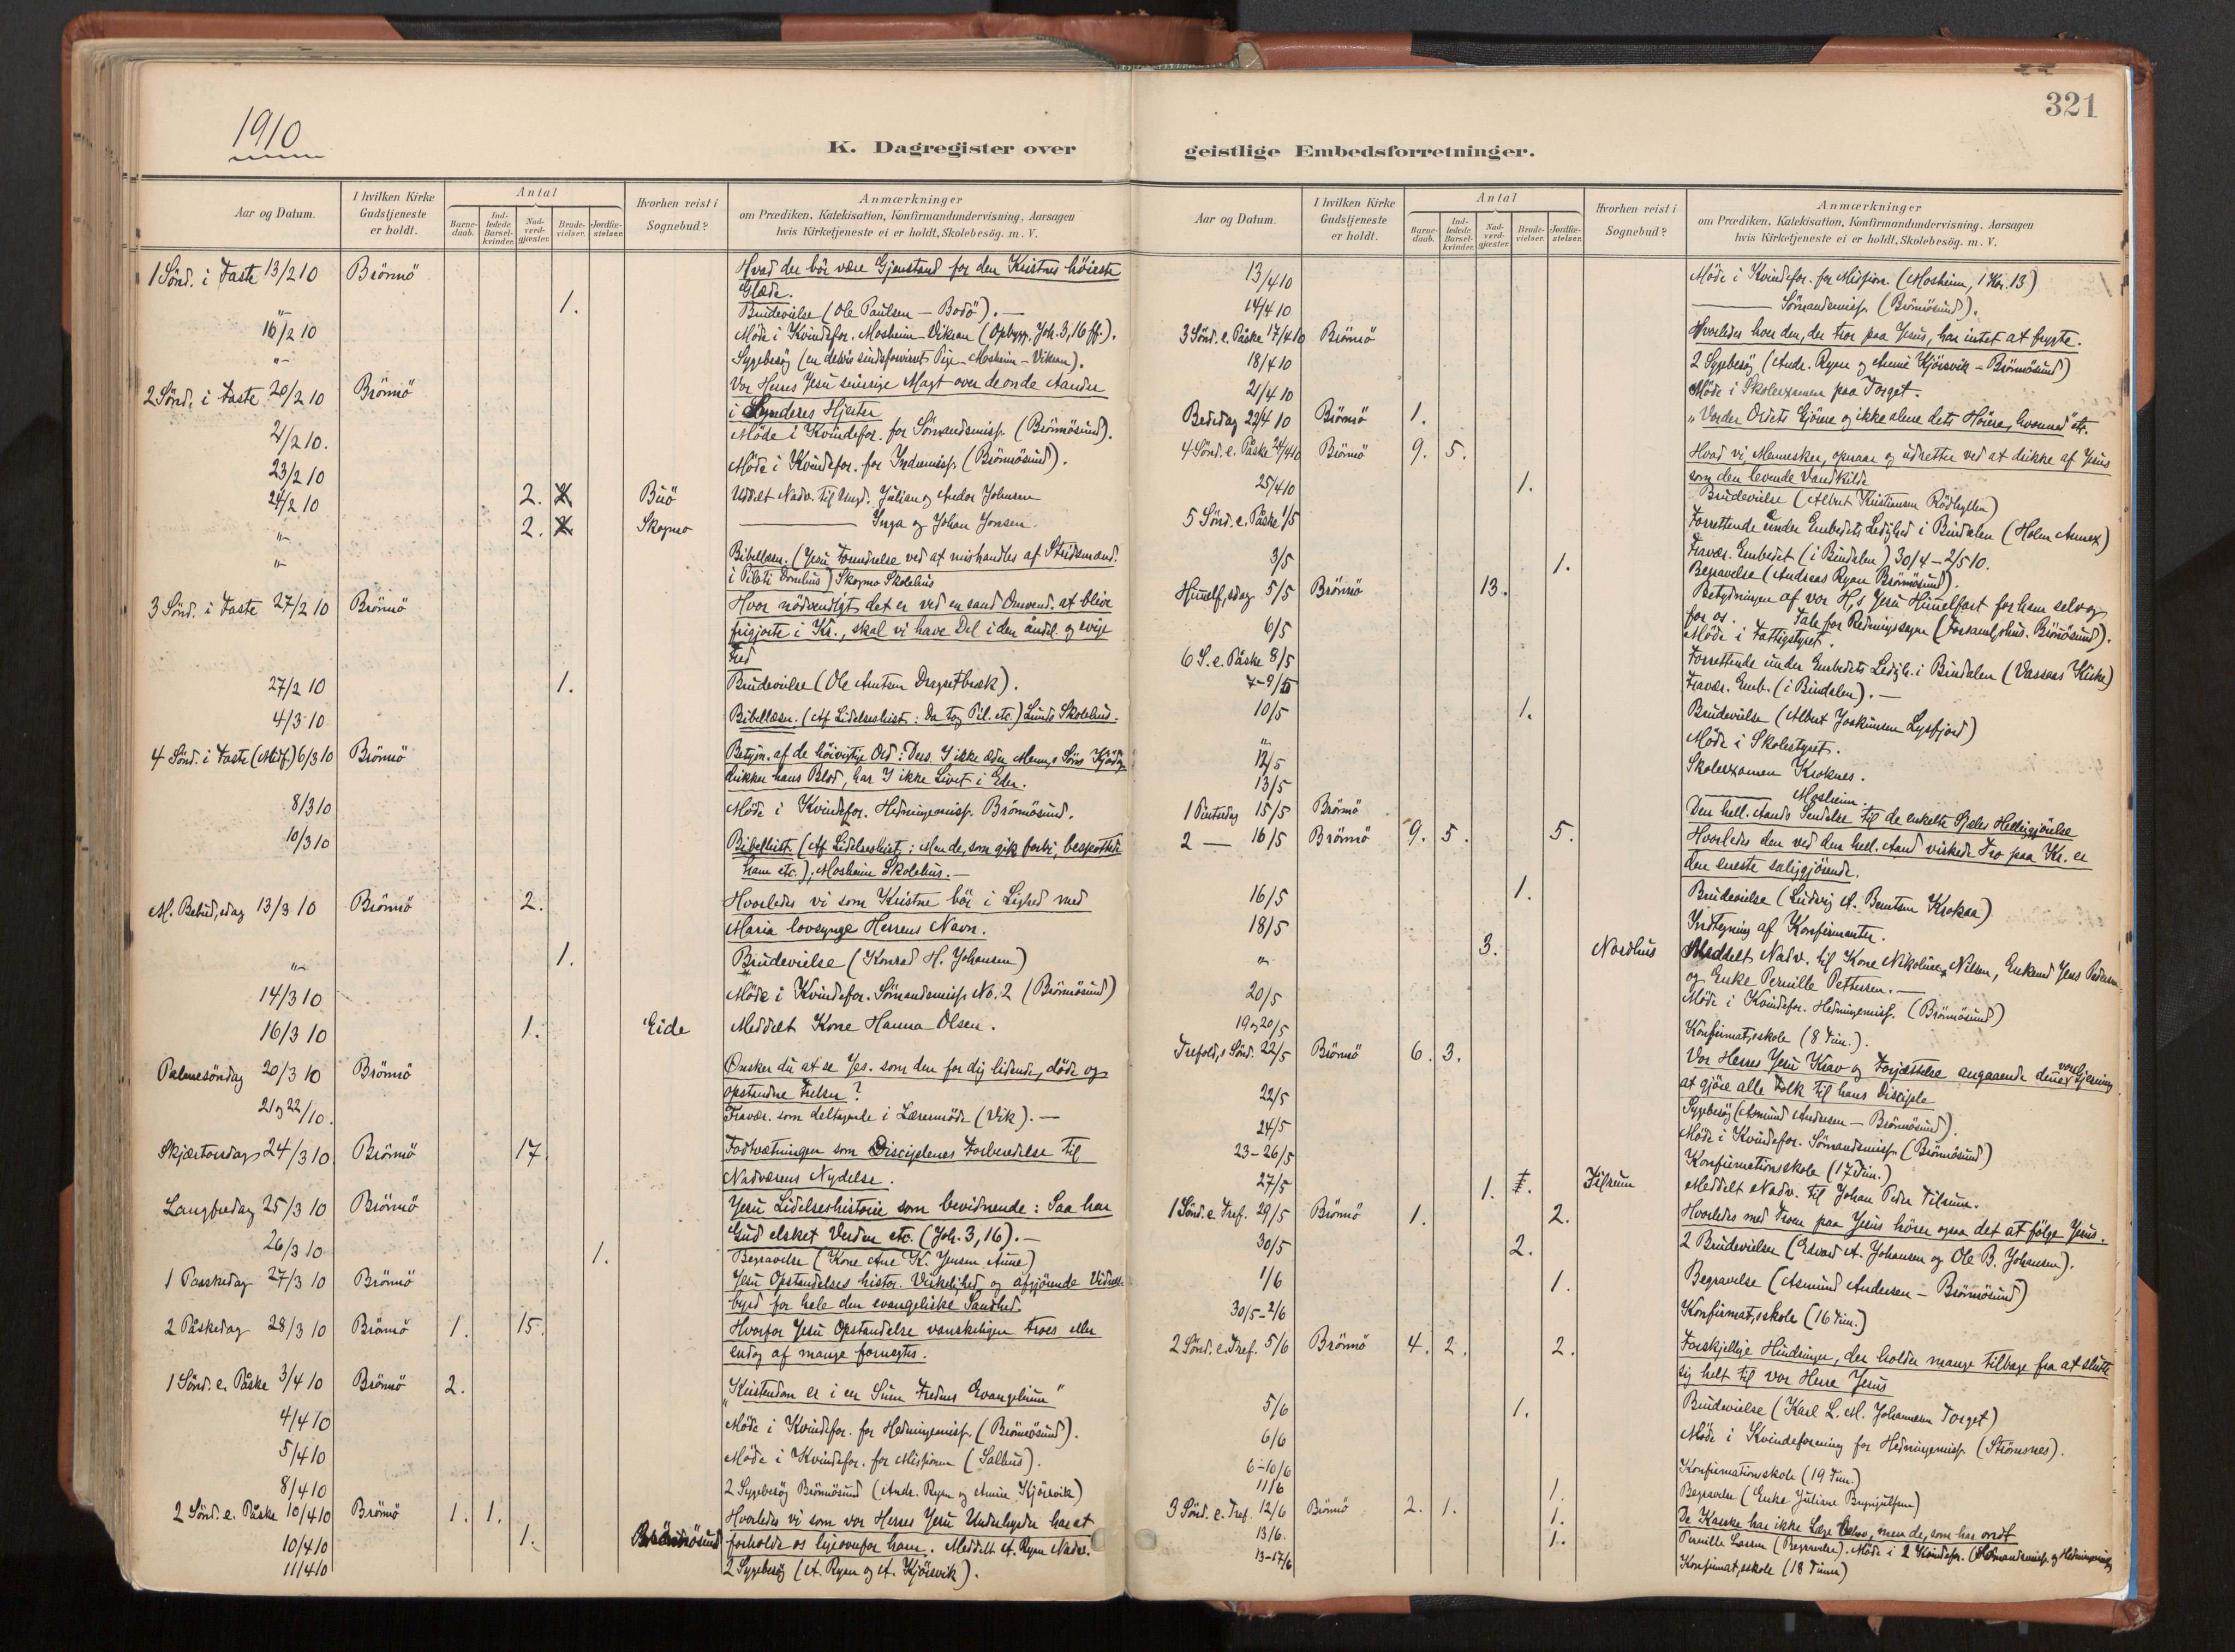 1910
K. Dagregister over
Aar og Datum.
I hvilken Kirke Gudstjeneste er holdt.
Antal
Barnedaab.
Indledede Barselkvinder.
Nadverdgjæster.
Brudevielser.
Jordfæstelser.
Hvorhen reist i Sognebud?
Anmærkninger
om Prædiken, Katekisation, Konfirmandundervisning, Aarsagen
hvis Kirketjeneste ei er holdt, Skolebesög. m. V.
1 Sönd. i Faste 13/2 10 Brönnö Hvad der bör være Gjenstand for den Kristnes höieste
Glæde.
"- 1. Brudevielse (Ole Paulsen - Bodö). -
16/2 10 Möde i Kvindefor. Mosheim-Vikran (Opbygg. Joh. 3,16 ff.).
"- Sygebesög (en delvis sindsforvirret Pige - Mosheim - Vikran).
2 Sönd. i Faste 20/2 10 Brönnö Vor Herres Jesu seierrige Magt over de onde Aander
i Synderes Hjerter
21/2 10. Möde i Kvindefor. for Sömandsmiss. (Brönnösund).
23/2 10 Möde i Kvindefor. for Indremiss. (Brönnösund).
24/2 10 2. Buö Uddelt Nadv. til Ungd. Julian og Andor Johnsen
"- 2. Skogmo ——— Inga og Johan Jonsen.
"- Bibellæsn. (Jesu Fornedrelse ved at mishandles af Stridsmænd.
i Pilati Domhus) Skogmo Skolehus
3 Sönd. i Faste 27/2 10 Brönnö Hvor nödvendigt det er ved en sand Omvend. at blive
frigjorte i Kr., skal vi have Del i den åndel. og evige
Fred
27/2 10 1. Brudevielse (Ole Arntsen Dragsetbræk).
4/3 10 Bibellæsn. (Af Lidelseshist: Da tog Pil. etc.) Lunds Skolehus.
4 Sönd. i Faste (Midf.) 6/3 10 Brönnö Betydn. af de höivigtige Ord: Ders. I ikke æder Menn,s Söns Kjöd og
drikker hans Blod, har I ikke Livet i Eder.
8/3 10 Möde i Kvindefor. Hedningemiss. Brönnösund.
10/3 10 Bibelhist. (Af Lidelseshist: Men de, som gik forbi, bespottede
ham etc.), Mosheim Skolehus. -
M. Bebud,sdag 13/3 10 Brönnö 2. Hvorledes vi som Kristne bör i Lighed med
Maria lovsynge Herrens Navn.
"- 1. Brudevielse (Konrad H. Johansen)
14/3 10 Möde i Kvindefor. Sömandsmiss. No. 2 (Brönnösund)
16/3 10 1. Eide Meddelt Kone Hanna Olsen.
Palmesöndag 20/3 10 Brönnö Önsker du at se Jes. som den for dig lidende, döde og
opstandne Frelser?
21 og 22/10. Fravær. som deltagende i Læremöde (Vik). -
Skjærtorsdag 24/3 10 Brönnö 17. Fodtvætningen som Disciplenes Forberedelse til
Nadverens Nydelse.
Langfredag 25/3 10 Brönnö Jesu Lidelseshistorie som bevidnende: Saa har
Gud elsket Verden etc. (Joh. 3,16). -
26/3 10 1. Begravelse (Kone Ane K. Jensen, Aune)
1 Paaskedag 27/3 10 Brönnö Jesu Opstandelses histor. Virkelighed og afgjörende Vidnes-
byrd for hele den evangeliske Sandhed.
2 Påskedag 28/3 10 Brönnö 1. 15. Hvorfor Jesu Opstandelse vanskeligen troes eller
endog af mange fornegtes.
1 Sönd. e. Påske 3/4 10 Brönnö 2. "Kristendom er i en Sum Fredens Evangelium"
4/4 10 Möde i Kvindefor. for Hedningemiss. (Brönnösund).
5/4 10 Möde i Kvindefor. for Missionen (Salhus).
8/4 10 2 Sygebesög Brönnösund (Andr. Ryen og Annie Kjörsvik)
2 Sönd. e. Påske 10/4 10 Brönnö 1. 1. Hvorledes vi som vor Herres Jesu Underhyrder har at
10/4 10 1. Brönnösund forholde os ligeovenfor ham. Meddelt A. Ryen Nadv.
11/4 10 2 Sygebesög (A. Ryen og A. Kjörsvik).
321
geistlige Embedsforretninger.
Aar og Datum.
I hvilken Kirke Gudstjeneste er holdt.
Antal
Barnedaab.
Indledede Barselkvinder.
Nadverdgjæster.
Brudevielser.
Jordfæstelser.
Hvorhen reist i Sognebud?
Anmærkninger
om Prædiken, Katekisation, Konfirmandundervisning, Aarsagen
hvis Kirketjeneste ei er holdt, Skolebesög. m. V.
13/4 10 Möde i Kvindefor. for Mission. (Mosheim, 1 Kor. 13)
14/4 10 ——— Sömandsmiss. (Brönnösund).
3 Sönd. e. Påske 17/4 10 Brönnö Hvorledes hver den, der tror paa Jesus, har intet at frygte.
18/4 10 2 Sygebesög (Andr. Ryen og Annie Kjörsvik - Brönnösund)
21/4 10 Möde i Skolexamen paa Torget.
Bededag 22/4 10 Brönnö 1. "Vorder Ordets Gjörere og ikke alene dets Hörere, hvormed" etc.
4 Sönd. e. Påske 24/4 10 Brönnö 9. 5. Hvad vi, Mennesker, opnaar og udretter ved at drikke af Jesus
som den levende Vandkilde
25/4 10 1. Brudevielse (Albert Kristiansen Rödhyllen)
5 Sönd. e. Påske 1/5 Forrettende under Embedets Ledighed i Bindalen (Holm Annex)
Fravær. Embedet (i Bindalen) 30/4 - 2/5 10.
3/5 1. Begravelse (Andreas Ryen Brönnösund).
Himelf,sdag 5/5 Brönnö 13. Betydningen af vor H,s Jesu Himelfart for ham selv og
for os. Tale for Redningssagen (Forsaml,shus. Brönnösund).
6/5 Möde i Fattigstyret.
6 S. e. Påske 8/5 Forrettende under Embedets Ledigh. i Bindalen (Vassaas Kirke)
7-9/5 Fravær. Emb. (i Bindalen). -
10/5 1. Brudevielse (Albert Joakimsen Lysfjord)
"- Möde i Skolestyret.
12/5 Skolexamen Kroknes.
13/5 ——— Mosheim.
1 Pintsedag 15/5 Brönnö Den hell. Aands Sendelse til de enkelte Sjæles Helliggjörelse
2 — 16/5 Brönnö 9. 5. 5. Hvorledes den ved den hell. Aand virkede Tro paa Kr. er
den eneste saliggjörende.
16/5 1. Brudevielse (Ludvig A. Berntsen Krokaa)
18/5 Indtegning af Konfirmanter.
"- 3. Nordhus Meddelt Nadv. til Kone Nikoline Nilsen, Enkemd Jens Pedersen
og Enke Pernille Pettersen. -
20/5 Möde i Kvindefor. Hedningemiss. (Brönnösund)
19 og 20/5 Konfirmat,sskole (8 Tim.).
Trefold,s Sönd. 22/5 Brönnö 6. 3. Vor Herres Jesu Krav og Forjættelse angaaende denne vor Gjerning
at gjöre alle Folk til hans Disciple
22/5 Sygebesög (Asmund Andersen - Brönnösund).
24/5 Möde i Kvindefor. Sömandsmiss. (Brönnösund)
23-26/5 Konfirmationsskole (17 Tim.)
27/5 1. Tilrem Meddelt Nadv. til Johan Peder Tilrem.
1 Sönd. e. Tref. 29/5 Brönnö 1. 2. Hvorledes med Troen paa Jesus hörer ogsaa det at fölge Jesus.
30/5 2. 2 Brudevielser (Edvard A. Johansen og Ole B. Johansen).
1/6 1. Begravelse (Asmund Andersen - Brönnösund)
30/5-2/6 Konfirmat,sskole (16 Tim.)
2 Sönd. e. Tref. 5/6 Brönnö 4. 2. 2. Forskjellige Hindringer, der holder mange tilbage fra at slutte
sig helt til vor Herre Jesus
5/6 1. Brudevielse (Karl L. M. Johannesen Torget)
6/6 Möde i Kvindeforening for Hedningemiss. (Strömsnes).
6-10/6 Konfirmationsskole (19 Tim.)
11/6 1. Begravelse (Enke Juliane Brynjulfsen)
3 Sönd. e. Tref. 12/6 Brönnö 2. 1. 1. De Karske har ikke Læge behov, men de, som har ondt
13/6. 1. Pernille Larsen (Begravelse). Möde i 2 Kvindefor. (Sömandsmiss. og Hedningemiss.
13-17/6 Konfirmat,sskole (18 Timer)